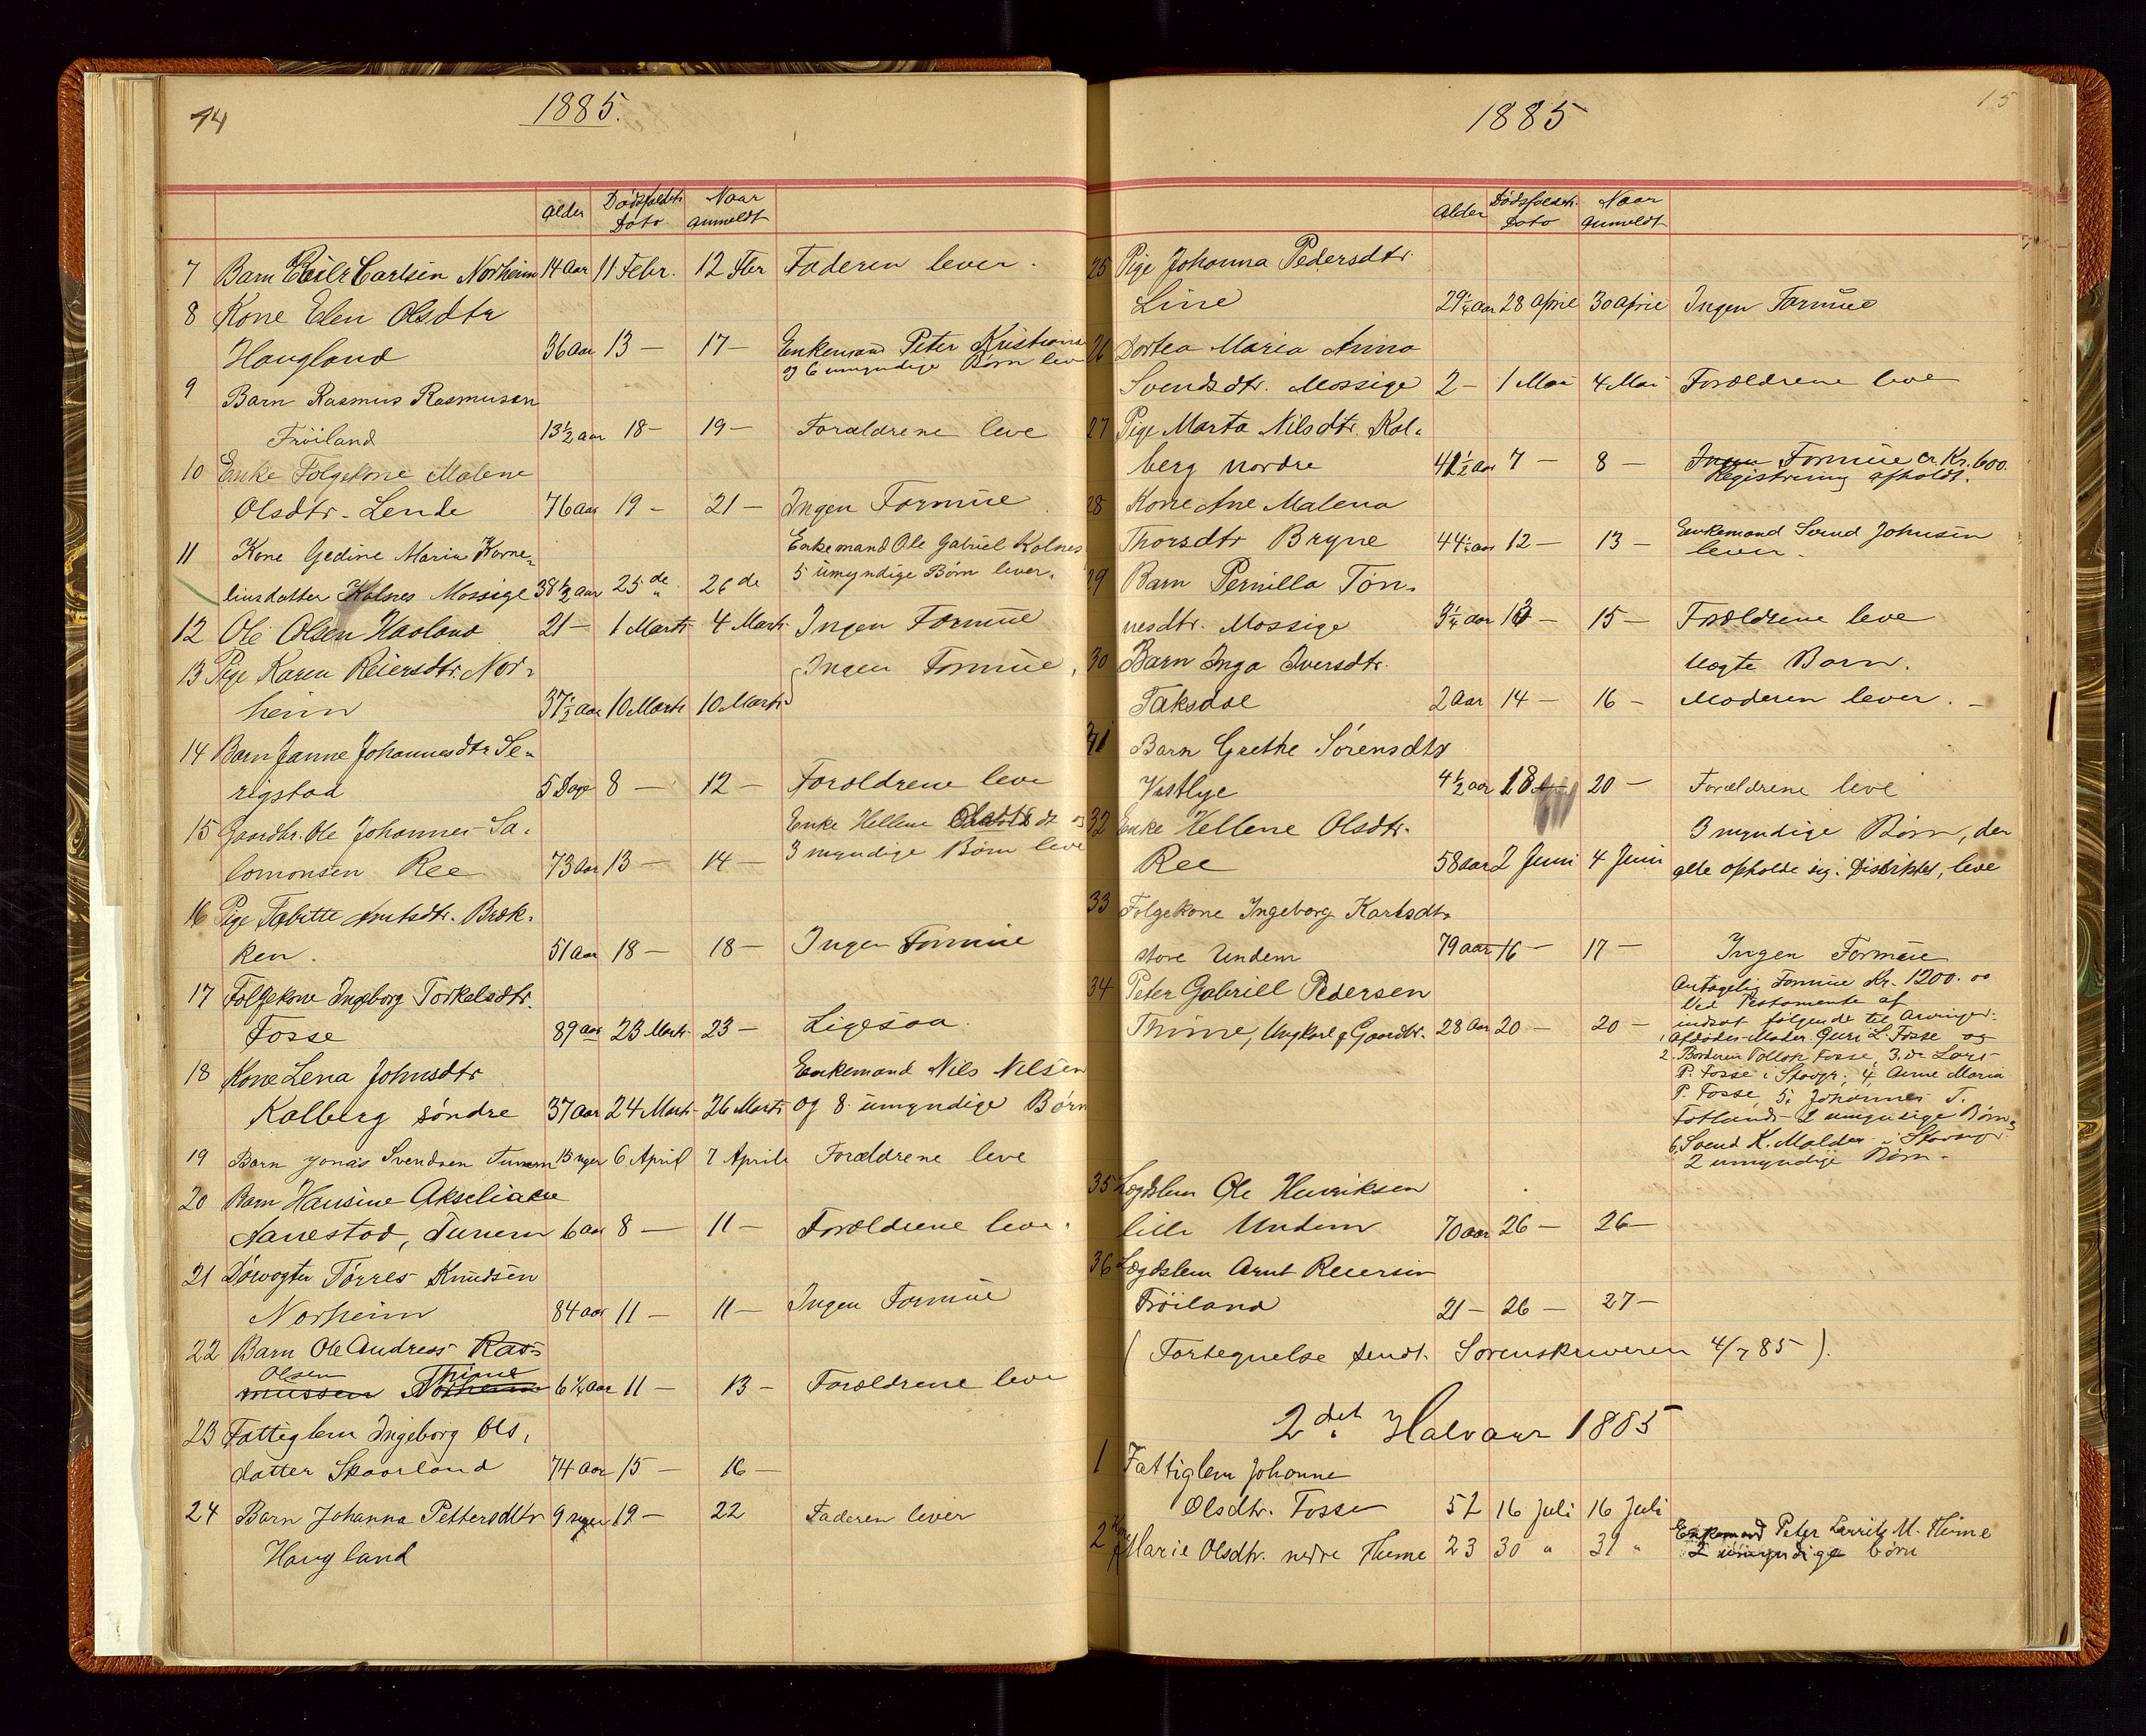 14
1885.
Alder Dødsfaldets Dato Naar Anmeldt
7 Barn Carlsen Norheim 14 Aar 11 Febr. 12 Fbr Faderen lever.
8 Kone Elen Olsdtr
Haugland 36 Aar 13 — 17 — Enkemand Peter Kristians
og 6 umyndige Børn leve
9 Barn Rasmus Rasmusen
Frøiland 13½ aar 18 — 19 — Forældrene leve
10 Enke Folgekone Malene
Olsdtr. Lende 76 Aar 19 - 21 — Ingen Formue
11 Kone Gedine Maria Korne-
liusdatter Kolnes Mossige 38½ aar 25 de 26 de Enkemand Ole Gabriel Kolnes
5 umyndige Børn lever.
12 Ole Olsen Haaland 21 — 1 Marts 4 Marts Ingen Formue
13 Pige Karen Reiersdtr. Nor-
heim 37½ Aar 10 Marts 10 Marts Ingen Formue.
14 Barn Janne Johannesdtr Se-
rigstad 5 Dage 8 — 12 — Forældrene leve
15 Gaardbr. Ole Johannes Sa-
lomonsen Ree 73 Aar 13 — 14 — Enke Hellene og
3 myndige Børn leve
16 Pige Tabitte Knutsdtr. Bræk-
ken. 51 Aar 18 — 18 — Ingen Formue
17 Folgekone Ingeborg Torkelsdtr.
Fosse 89 aar 23 Marts 23 — Ligesaa.
18 Kone Lena Johnsdtr Enkemand Nils Nilsen
Kalberg søndre 37 Aar 24 Marts 26 Marts og 8 umyndige Børn
19 Barn Jonas Svendsen Tunem 15 uger 6 April 7 April Forældrene leve
20 Barn Hansine Akseliane
Aanestad, Tunem 6 Aar 8 — 11 — Forældrene leve.
21 Dørvogter Tørres Knudsen
Norheim 84 aar 11 — 11 — Ingen Formue
22 Barn Ole Andreas Ras-
Olsen Thime
mussen Norheim 6¼ Aar 11 — 13 - Forældrene leve
23 Fattiglem Ingeborg Ols-
datter Skaarland 74 Aar 15 — 16 —
24 Barn Johanna Pettersdtr 9 uger 19 — 22 Faderen lever
Haugland
15
1885
Alder Dødsfaldets Dato Naar Anmeldt
25 Pige Johanna Pedersdtr.
Line 29¼ Aar 28 April 30 April Ingen Formue
26 Dortea Maria Anna
Svendsdtr. Mossige 2 — 1 Mai 4 Mai Forældrene leve
27 Pige Marta Nilsdtr. Kal-
berg nordre 41½ Aar 7 — 8 — Ingen Formue Cr. Kr. 600.
Registrering afholdt.
28 Kone Ane Malena
Thorsdtr Bryne 44¼ aar 12 — 13 — Enkemand Svend Johnsen
lever.
29 Barn Pernilla Tøn-
nesdtr. Mossige 3¼ aar 13 — 15 — Forældrene leve
30 Barn Inga Iversdtr. Uægte Barn.
Taksdal 2 Aar 14 — 16 — Moderen lever.
31 Barn Grethe Sørensdtr
Vestlye 4½ Aar 18 20 — Forældrene leve
32 Enke Hellene Olsdtr. 3 myndige Børn, der
Ree 58 aar 2 Juni 4 Juni alle opholde sig i Distriktet, leve
33 Folgekone Ingeborg Karlsdtr
store Undem 79 aar 16 — 17 — Ingen Formue
34 Peter Gabriell Pedersen
Thime, Ungkarl & Gaardbr. 28 Aar 20 — 20 — Antagelig Formue Kr. 1200.00
Ved Testamente af
indsat følgende til Arvinger:
1 Afdødes Moder Guri L. Fosse og
2. Brødrene Fosse, 3. Lars
P. Fosse i Stavgr; 4, Anne Maria
P. Fosse, 5, Johannes T.
Fotlands 2 umyndige Børn,
6, Svend K. Malde i Stavgr.
2 umyndige Børn.
35 Lægdslem Ole Henriksen
lille Undem 70 aar 26 — 26 —
36 Lægdslem Arnt Reiersen
Frøiland 21 — 26 — 27 —
( Fortegnelse sendt Sorenskriveren 4/7 85 ).
2det Halvaar 1885
1 Fattiglem Johanne
Olsdtr. Fosse 52 16 Juli 16 Juli
2 Kone Marie Olsdtr. nedre Thime 23 30 " 31 " Enkemand Peter M. Thime
2 umyndige børn